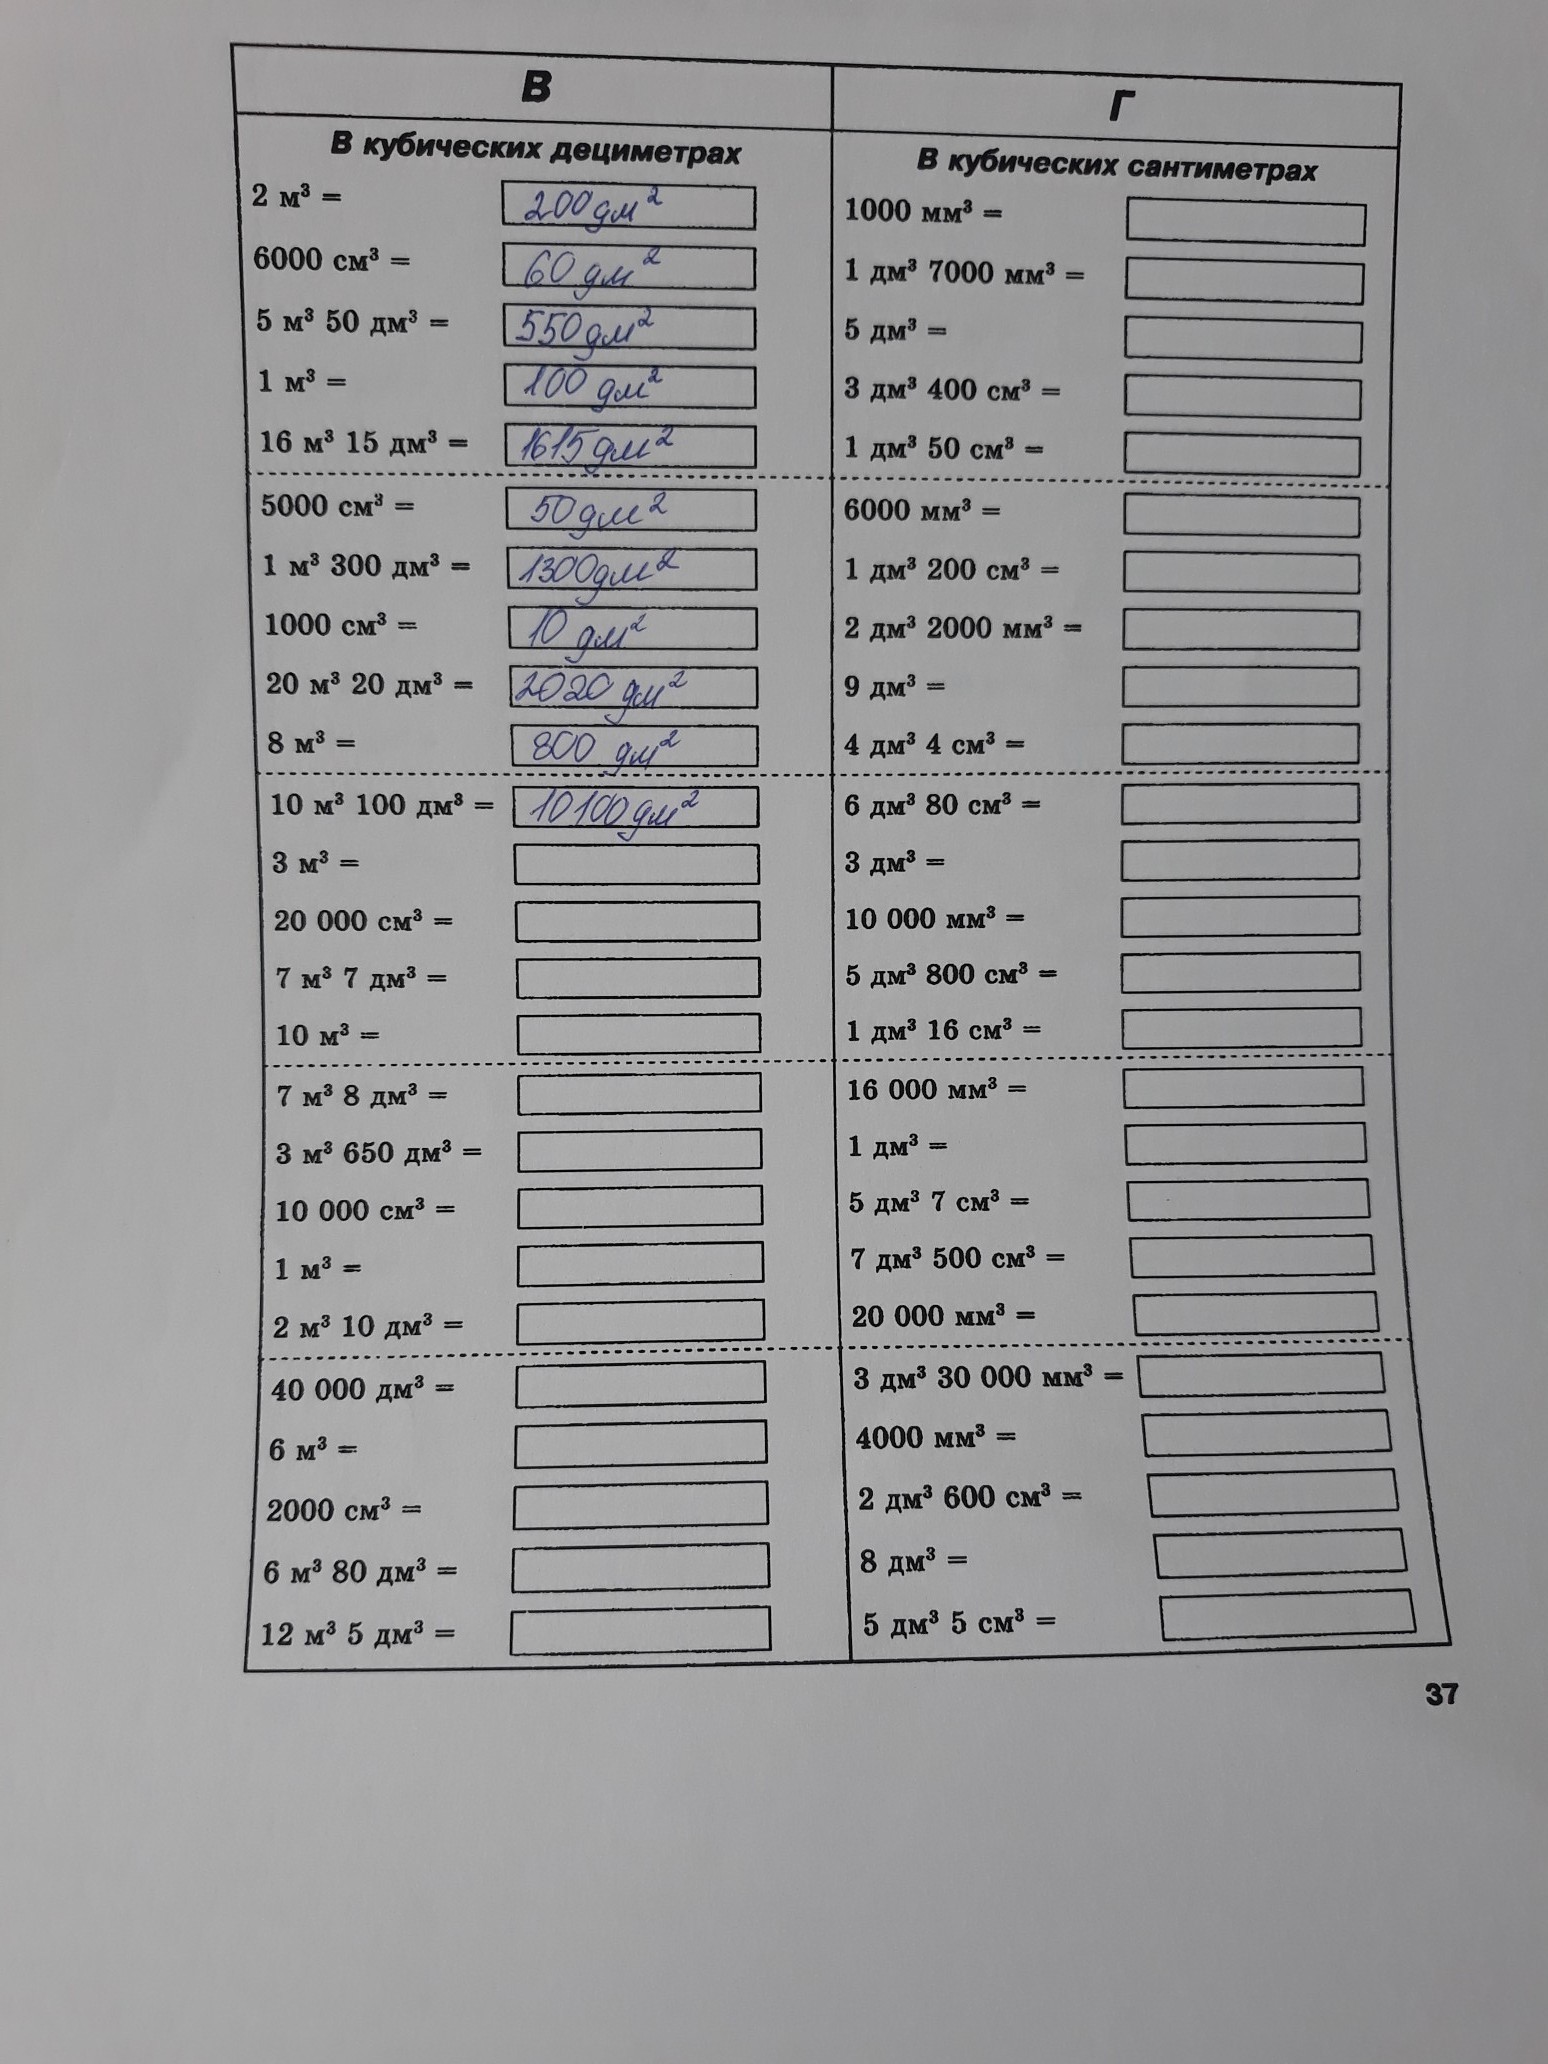 В
В кубических дециметрах
2 м³ = 200 дм²
6000 см³ = 60 дм²
5 м³ 50 дм³ = 550 дм²
1 м³ = 100 дм²
16 м³ 15 дм³ = 1615 дм²
5000 см³ = 50 дм²
1 м³ 300 дм³ = 1300 дм²
1000 см³ = 10 дм²
20 м³ 20 дм³ = 2020 дм²
8 м³ = 800 дм²
10 м³ 100 дм³ = 10100 дм²
3 м³ =
20 000 см³ =
7 м³ 7 дм³ =
10 м³ =
7 м³ 8 дм³ =
3 м³ 650 дм³ =
10 000 см³ =
1 м³ =
2 м³ 10 дм³ =
40 000 дм³ =
6 м³ =
2000 см³ =
6 м³ 80 дм³ =
12 м³ 5 дм³ =
Г
В кубических сантиметрах
1000 мм³ =
1 дм³ 7000 мм³ =
5 дм³ =
3 дм³ 400 см³ =
1 дм³ 50 см³ =
6000 мм³ =
1 дм³ 200 см³ =
2 дм³ 2000 мм³ =
9 дм³ =
4 дм³ 4 см³ =
6 дм³ 80 см³ =
3 дм³ =
10 000 мм³ =
5 дм³ 800 см³ =
1 дм³ 16 см³ =
16 000 мм³ =
1 дм³ =
5 дм³ 7 см³ =
7 дм³ 500 см³ =
20 000 мм³ =
3 дм³ 30 000 мм³ =
4000 мм³ =
2 дм³ 600 см³ =
8 дм³ =
5 дм³ 5 см³ =
37